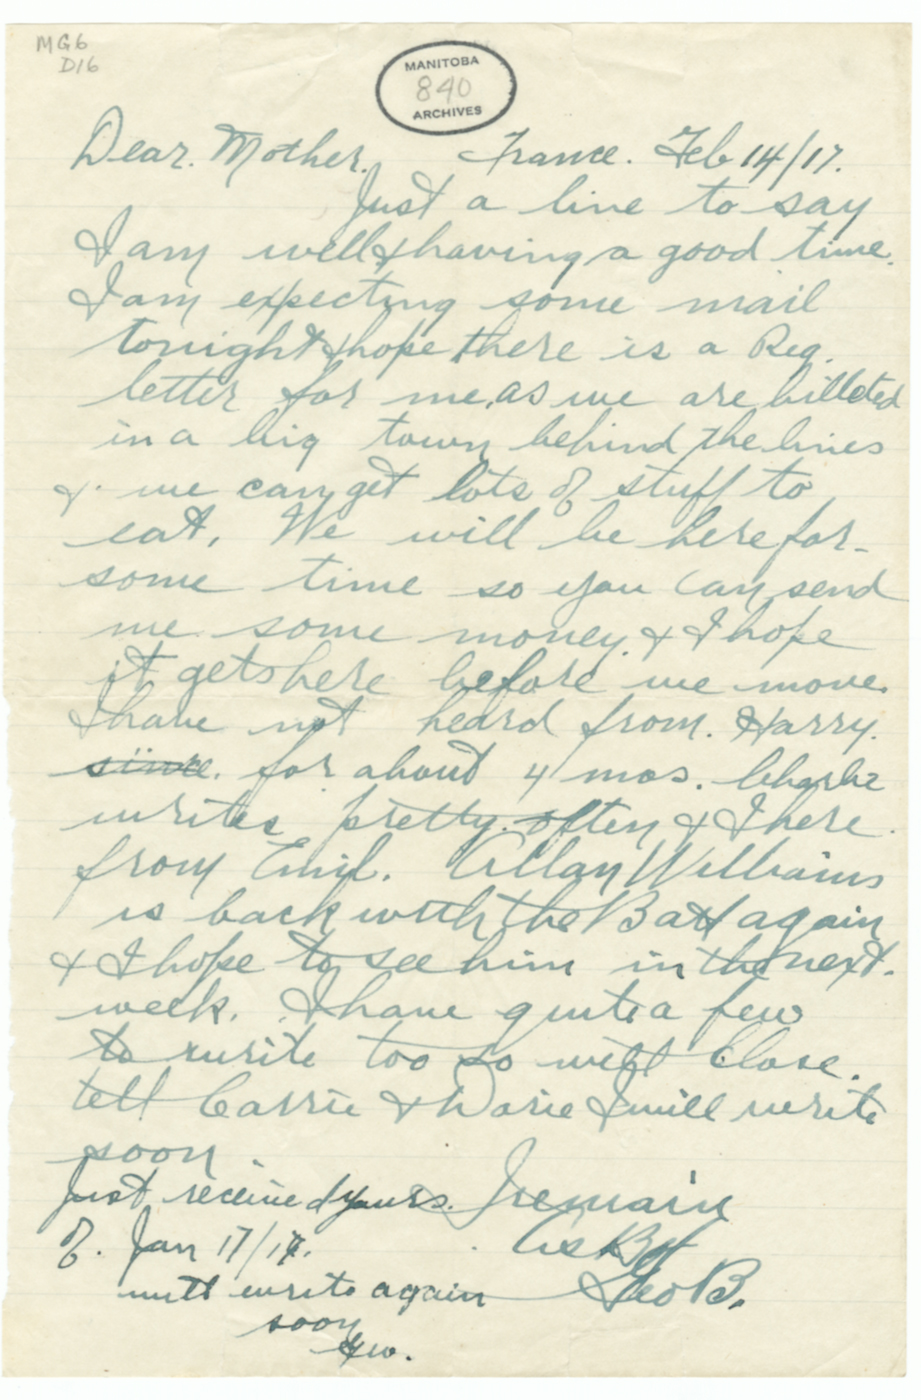 MG6
D16
MANITOBA
840
ARCHIVES
Dear. Mother. France. Feb 14/17.
Just a line to say
I am well & having a good time.
I am expecting some mail
tonight & hope there is a Reg.
letter for me, as we are billeted
in a big town behind the lines
& we can get lots of stuff to
eat. We will be here for
some time so you can send
me some money & I hope
it gets here before we move.
I have not heard from. Harry.
since. for about 4 mos. Charlie
writes pretty often & I here
from Emil. Allan Williams
is back with the Batt again
& I hope to see him in the next.
week. I have quite a few
to write too so will Close.
tell Carrie & Dorie I will write
soon.
I remain
As
Geo B.
Just received yours.
of. Jan 17/17.
will write again
soon
Geo.